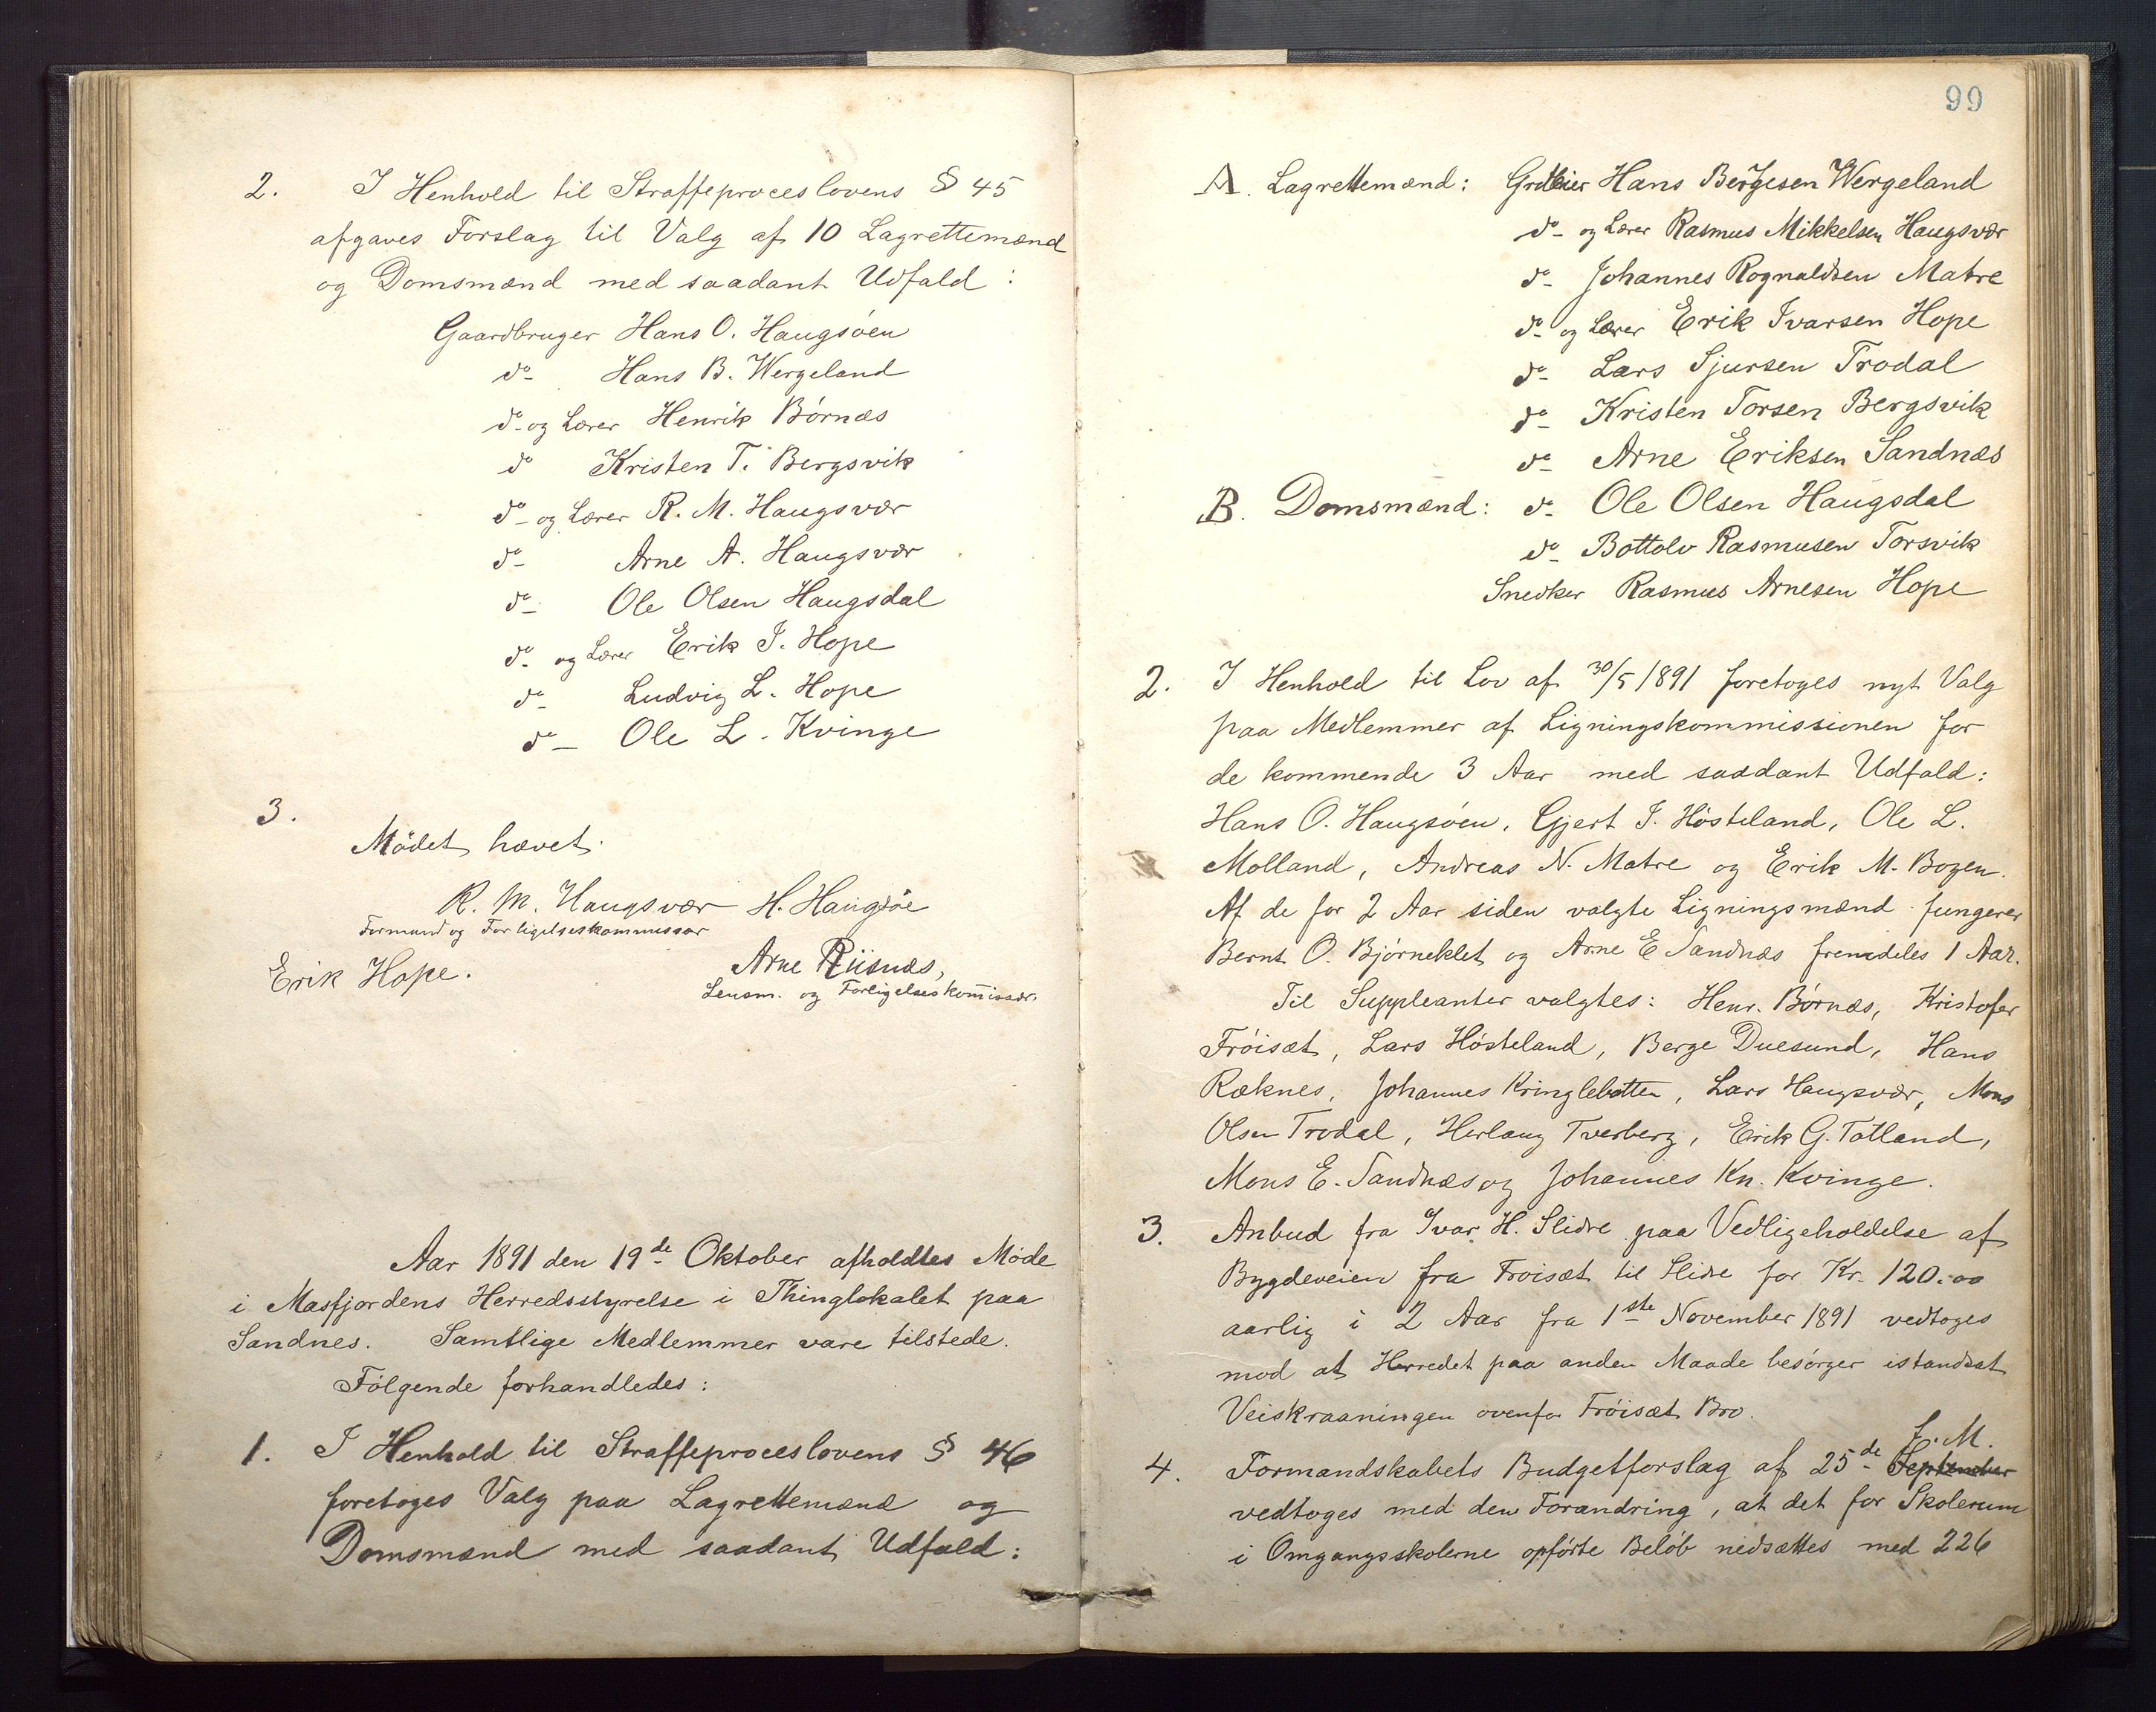 2. I Henhold til Straffeproceslovens § 45
afgaves Forslag til Valg af 10 Lagrettemænd
og Domsmænd med saadant Udfald:
Gaardbruger Hans O. Haugsöen
do Hans B. Wergeland
do og Lærer Henrik Börnæs
do Kristen T. Bergsvik
do og Lærer R. M. Haugsvær
do Arne A. Haugsvær
do Ole Olsen Haugsdal
do og Lærer Erik I. Hope
do Ludvig L. Hope
do Ole L. Kvinge
3.
Mödet hævet.
R. M. Haugsvær H. Haugsöe
Formand og Forligelseskommissær
Erik Hope. Arne Riisnæs,
Lensm. og Forligelseskomissær.
Aar 1891 den 19de Oktober afholdtes Möde
i Masfjordens Herredsstyrelse i Thinglokalet paa
Sandnes. Samtlige Medlemmer vare tilstede.
Fölgende forhandledes:
1. I Henhold til Straffeproceslovens § 46
foretoges Valg paa Lagrettemænd og
Domsmænd med saadant Udfald:
99
A. Lagrettemænd: Grdbr Hans Bergesen Wergeland
do og Lærer Rasmus Mikkelsen Haugsvær
do Johannes Rognaldsen Matre
do og Lærer Erik Ivarsen Hope
do Lars Sjursen Trodal
do Kristen Torsen Bergsvik
do Arne Eriksen Sandnæs
B. Domsmænd: do Ole Olsen Haugsdal
do Bottolv Rasmusen Torsvik
Snedker Rasmus Arnesen Hope
2. I Henhold til Lov af 30/5 1891 foretoges nyt Valg
paa Medlemmer af Ligningskommissionen for
de kommende 3 Aar med saadant Udfald:
Hans O. Haugsöen, Gjert I. Hösteland, Ole L.
Molland, Andreas N. Matre og Erik M. Bogen.
Af de for 2 Aar siden valgte Ligningsmænd fungerer
Bernt O. Björneklet og Arne E Sandnæs fremdeles 1 Aar.
Til Suppleanter valgtes: Henr. Börnæs, Kristofer
Fröisæt, Lars Hösteland, Berge Duesund, Hans
Ræknes, Johannes Kringlebotten, Lars Haugsvær, Mons
Olsen Trodal, Herlaug Tverberg, Erik G. Totland,
Mons E. Sandnæs og Johannes Kn. Kvinge.
3. Anbud fra Ivar H. Slidre paa Vedligeholdelse af
Bygdeveien fra Froisæt til Slidre for Kr. 120.00
aarlig i 2 Aar fra 1ste November 1891 vedtoges
mod at Herredet paa anden Maade besörger istandsat
Veiskraaningen ovenfor Fröisæt Bro.
f. M.
4. Formandskabets Budgetforslag af 25de September
vedtoges med den Forandring, at det for Skolerum
i Omgangsskolerne opförte Belöb nedsættes med 226